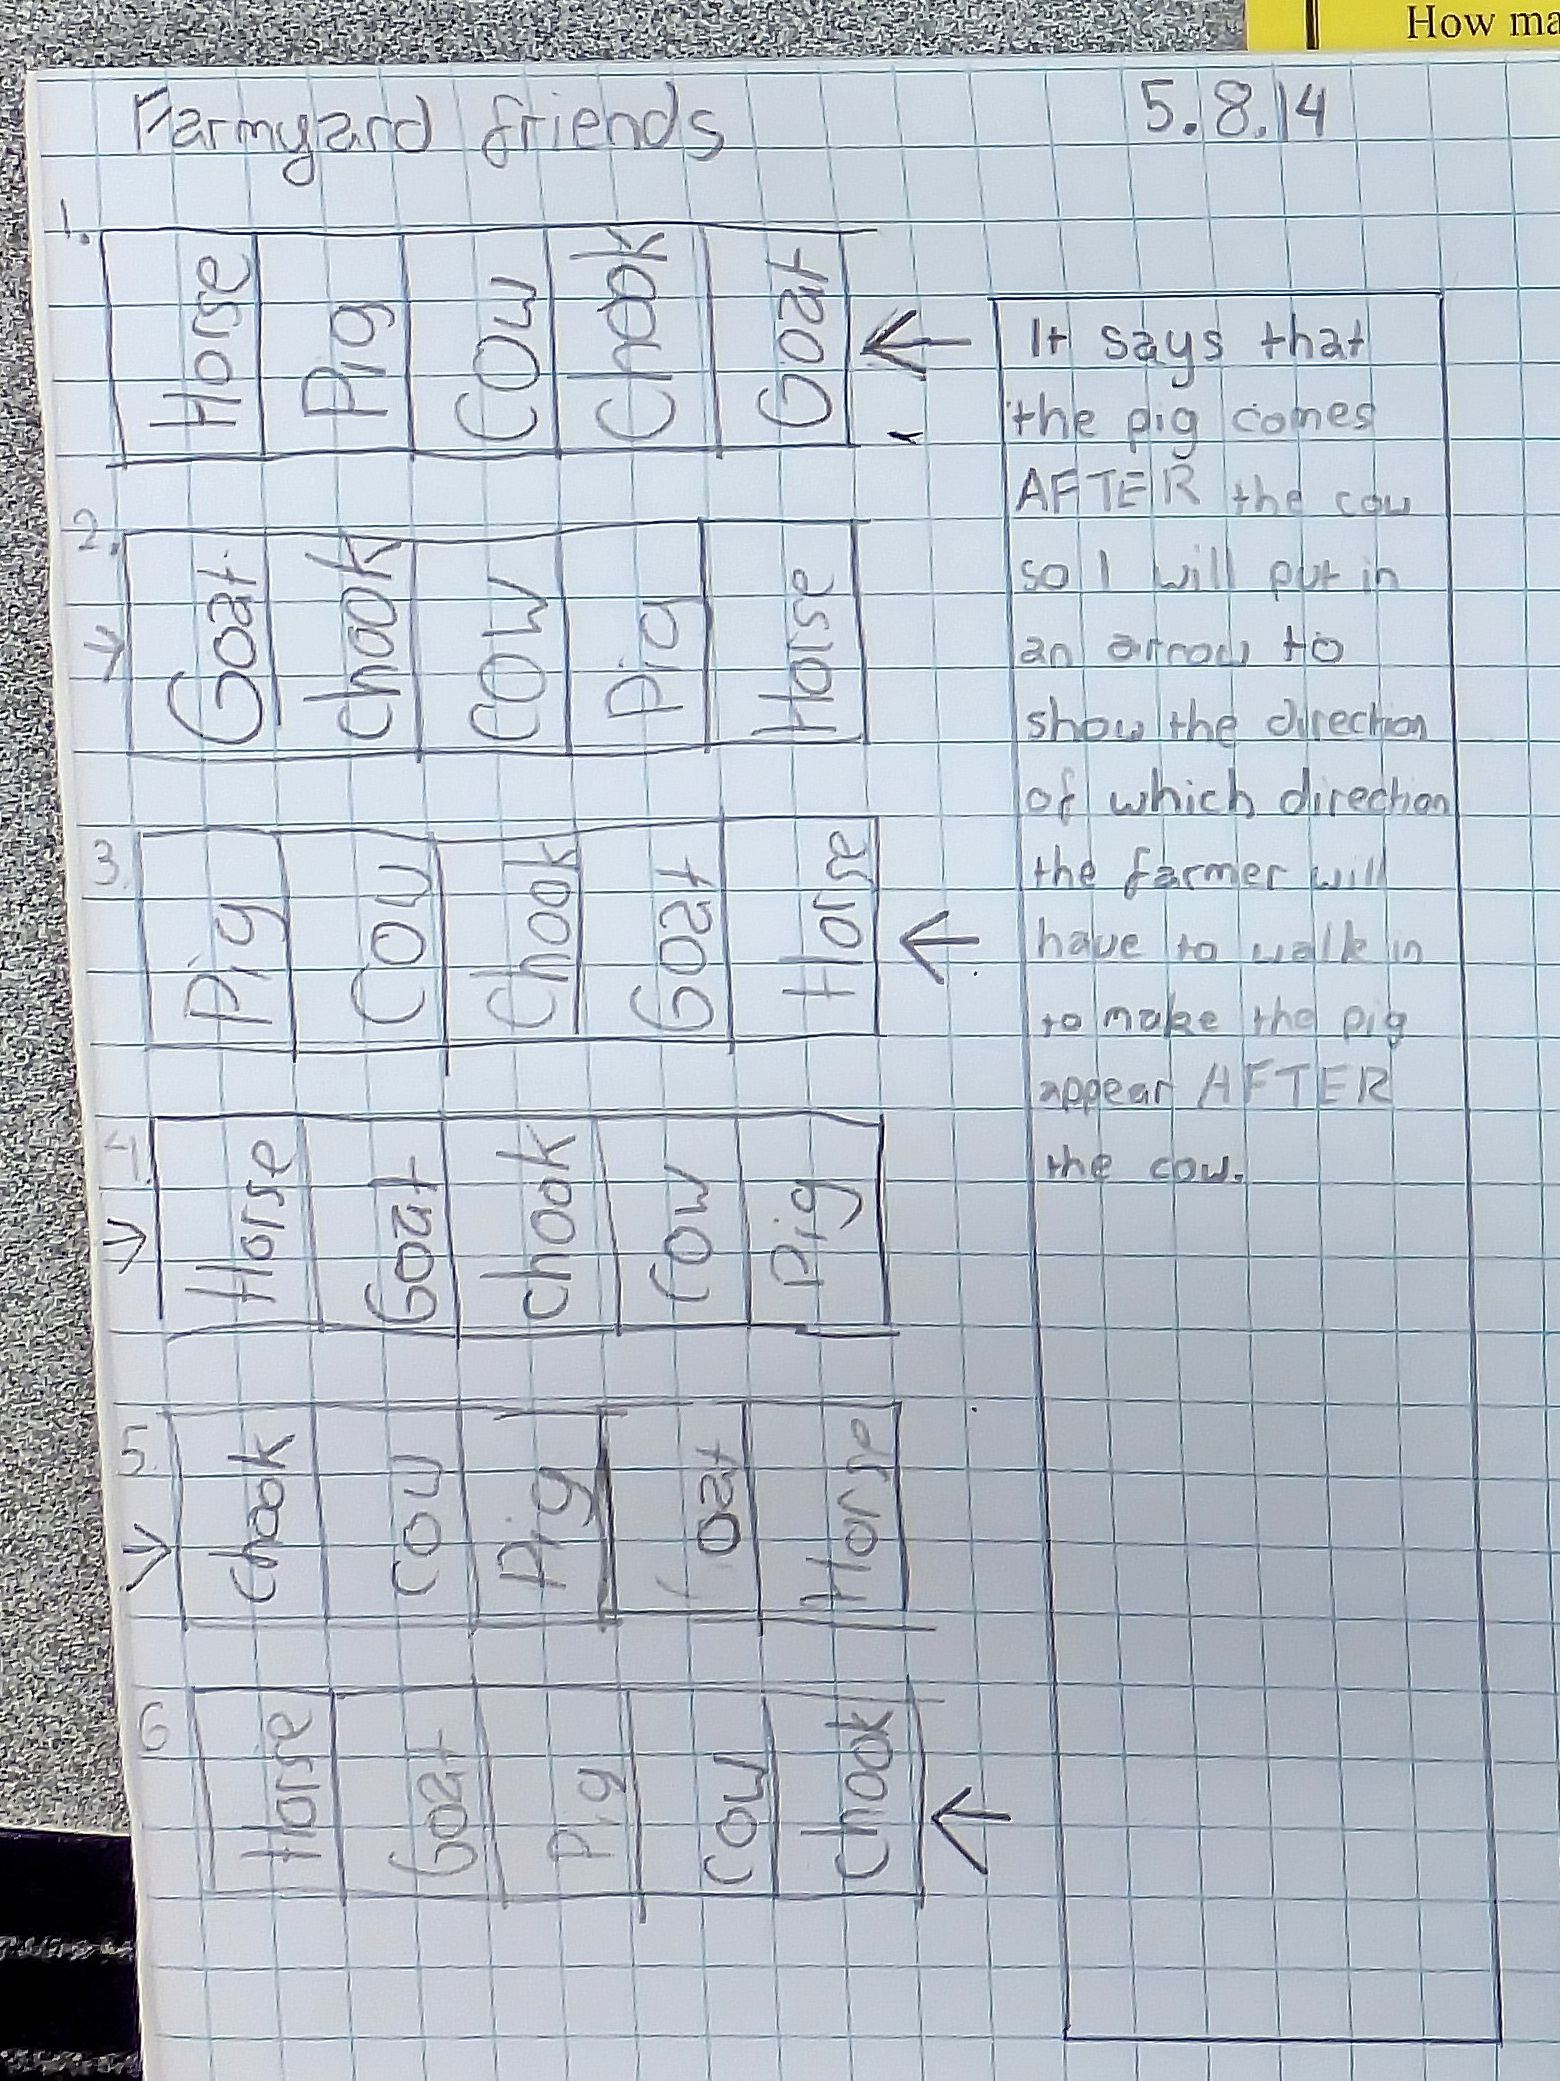 How ma
Farmyard friends
5.8.14
1.
Horse
Pig
Cow
Chook
Goat
2.
Goat
chook
cow
Pig
Horse
3.
Pig
Cow
Chook
Goat
Horse
4.
Horse
Goat
chook
Cow
Pig
5.
chook
cow
Pig
oat
Horse
6
Horse
Goat
Pig
cow
chook
It says that
the pig comes
AFTER the cow
so I will put in
an arrow to
show the direction
of which direction
the farmer will
have to walk in
to make the pig
appear AFTER
the cow.